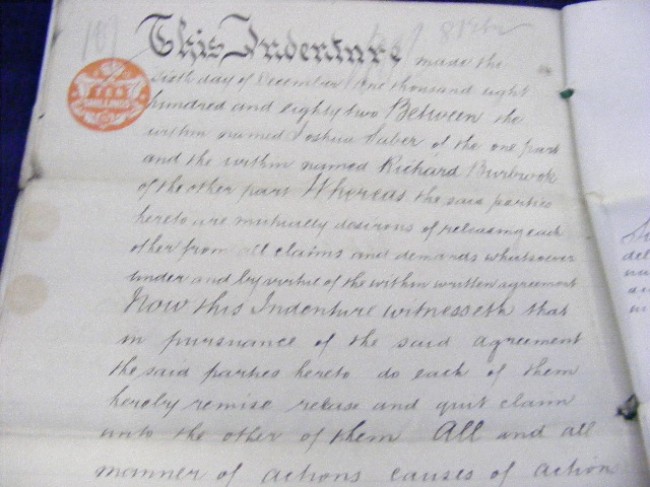 This Indenture made the
Sixth day of December One thousand eight
hundred and eighty two Between the
within named Joshua of the one part
and the within named Richard
of the other part Whereas the said parties
hereto are mutually desirous of releasing each
other from all claims and demands whatsoever
under and by virtue of the within written agreement
Now this Indenture witnesseth that
in pursuance of the said agreement
the said parties hereto do each of them
hereby remise release and quit claim
unto the other of them All and all
manner of actions causes of action
TEN
SHILLINGS